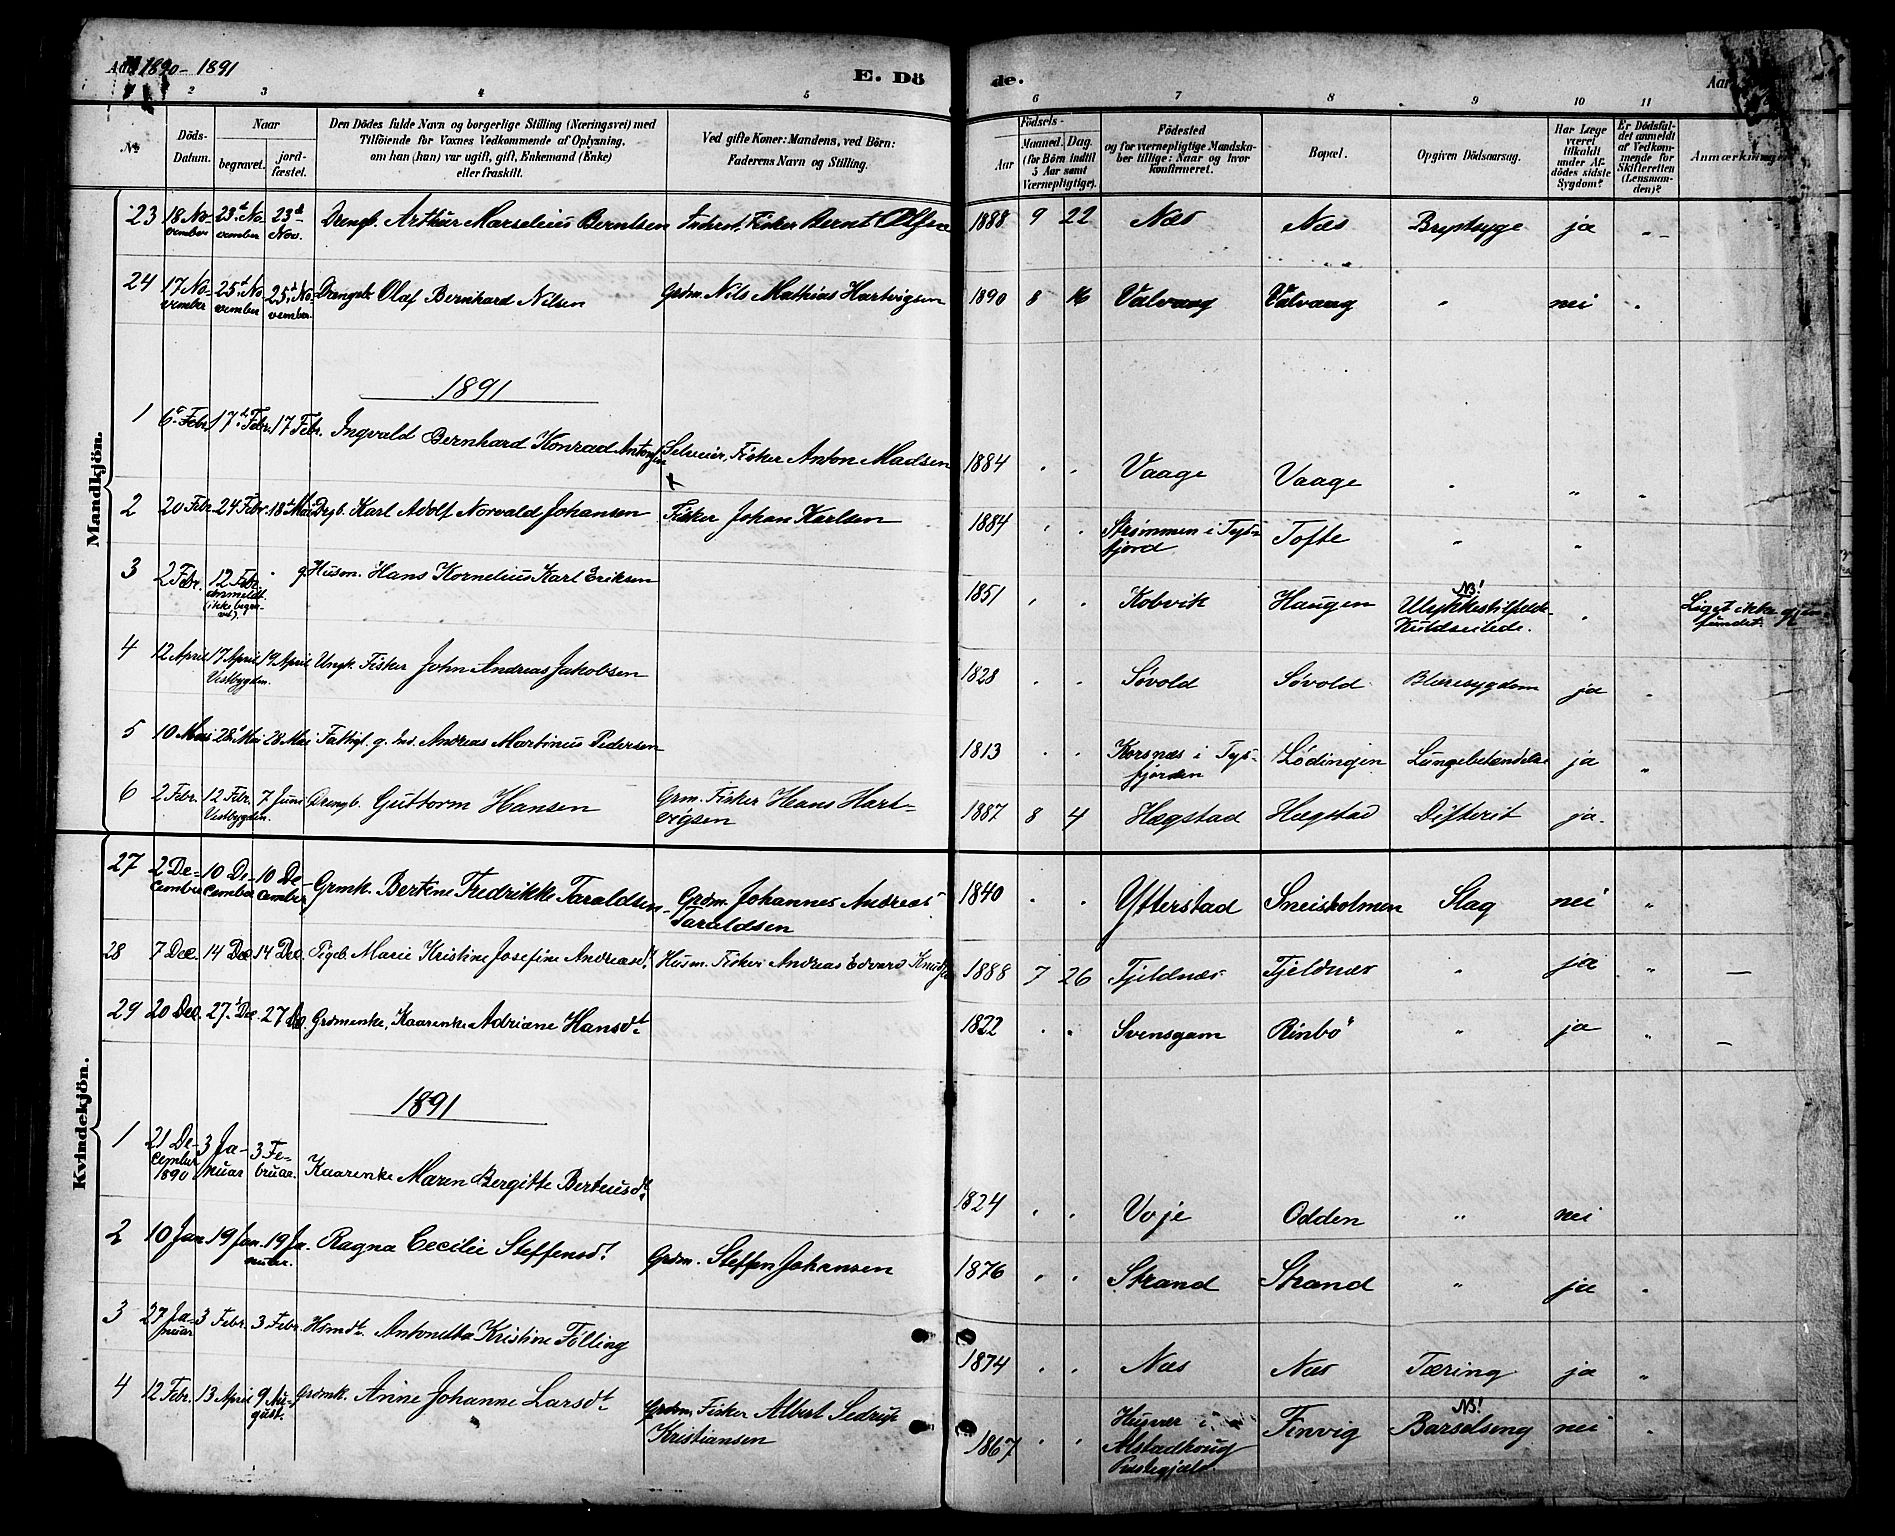 Aar 1890-1891
E. Dö
de.
Aar
1 2 3 4 5 6 7 8 9 10 11
№
Döds-
Datum.
Naar
begravet.
jord-
fæstet.
Den Dödes fulde Navn og borgerlige Stilling (Næringsvei) med
Tilföiende for Voxnes Vedkommende af Oplysning,
om han (hun) var ugift, gift, Enkemand (Enke)
eller fraskilt.
Ved gifte Koner: Mandens, ved Börn:
Faderens Navn og Stilling.
Födsels-
Aar
Maaned. Dag.
(for Börn indtil
5 Aar samt
Værnepligtige).
Födested
og for værnepligtige Mandska-
ber tillige: Naar og hvor
konfirmeret.
Bopæl.
Opgiven Dödsaarsag.
Har Læge
været
tilkaldt
under Af-
dödes sidste
Sygdom?
Er Dödsfal-
det anmeldt
af Vedkom-
mende for
Skifteretten
(Lensman-
den)?
Anmærkninger
Mandkjön.
23 18 No-vember 23d No-vember 23d Nov. Drengb. Arthur Marselius Berntsen Inderst, Fisker Bernt Olsen 1888 9 22 Næs Næs Brystsyge ja " –
24 17 No-vember 25d No-vember 25d No-vember. Drengeb. Olaf Bernhard Nilsen Grdm. Nils Mathias Hartvigsen 1890 8 16 Valvaag Valvaag " nei "
1891
1 6 Febr. 17d Febr. 17 Febr. Ingvald Bernhard Konrad Antonsen Selveier, Fisker Anton Madsen 1884 " " Vaage Vaage " " "
2 20 Febr. 24 Febr. 18d Mai Drgb. Karl Adolf Norvald Johansen Fisker Johan Karlsen 1884 " " Strømmen i Tys-
fjord Tofte " "
3 2 Febr. 12 Febr. anmeldt (ikke begra-vet). " g. Husm. Hans Kornelius Karl Eriksen 1851 " " Kobvik Haugen NB! Ulykkestilfælde
Kuldseilede. " Liget ikke gjen-
fundet.
4 12 April 17 April Vestbygden. 19 April Ungk. Fisker John Andreas Jakobsen 1828 " " Søvold Søvold Blæresygdom ja "
5 10 Mai 28d Mai 28 Mai Fattigl. g. Ind. Andreas Martinus Pedersen 1813 " " Korsnæs i Tys-
fjorden Lødingen Lungebetændelse ja "
6 2 Febr. 12 Febr. Vestbygden. 7 Juni Drengb. Guttorm Hansen Grm. Fisker Hans Hart-
vigsen 1887 8 4 Hægstad Hægstad Difterit ja.
Kvindekjön.
27 2 De-cember 10 De-cember 10 De-cember Grmk. Bertine Fredrikke Taraldsen Grdm. Johannes Andreas
Taraldsen 1840 " " Ytterstad Sneisholmen Slag nei "
28 7 Dec. 14 Dec 14 Dec. Pigeb. Marie Kristine Josefine Andreasdt. Husm. Fisker Andreas Edvard 1888 7 26 Fjeldnæs Fjeldnæs " ja " –
29 20 Dec. 27d Dec 27 Dec. Grdmenke, Kaarenke Adriane Hansdt. 1822 " " Svensgam Rinbø " ja " –
1891
1 21 De-cember 1890 3 Ja-nuar 3 Fe-bruar. Kaarenke Maren Bergitte Berteusdt. 1824 " " Voje Odden " nei
2 10 Jan. 19 Jan. 19 Ja-nuar. Ragna Cecilie Steffensdt. Grdm. Steffen Johansen 1876 " " Strand Strand " ja "
3 27 Ja-nuar 3 Febr. 3 Febr. Hsmdt. Antonetta Kristine Følling 1874 " " Næs Næs Tæring ja "
4 12 Febr. 13 April 9 Au-gust. Grdmk. Anne Johanne Larsdt. Grdm. Fisker Albert Sedrup
Kristiansen 1867 " " i
Alstadhoug
Præstegjeld. Finvig NB! Barselseng nei "